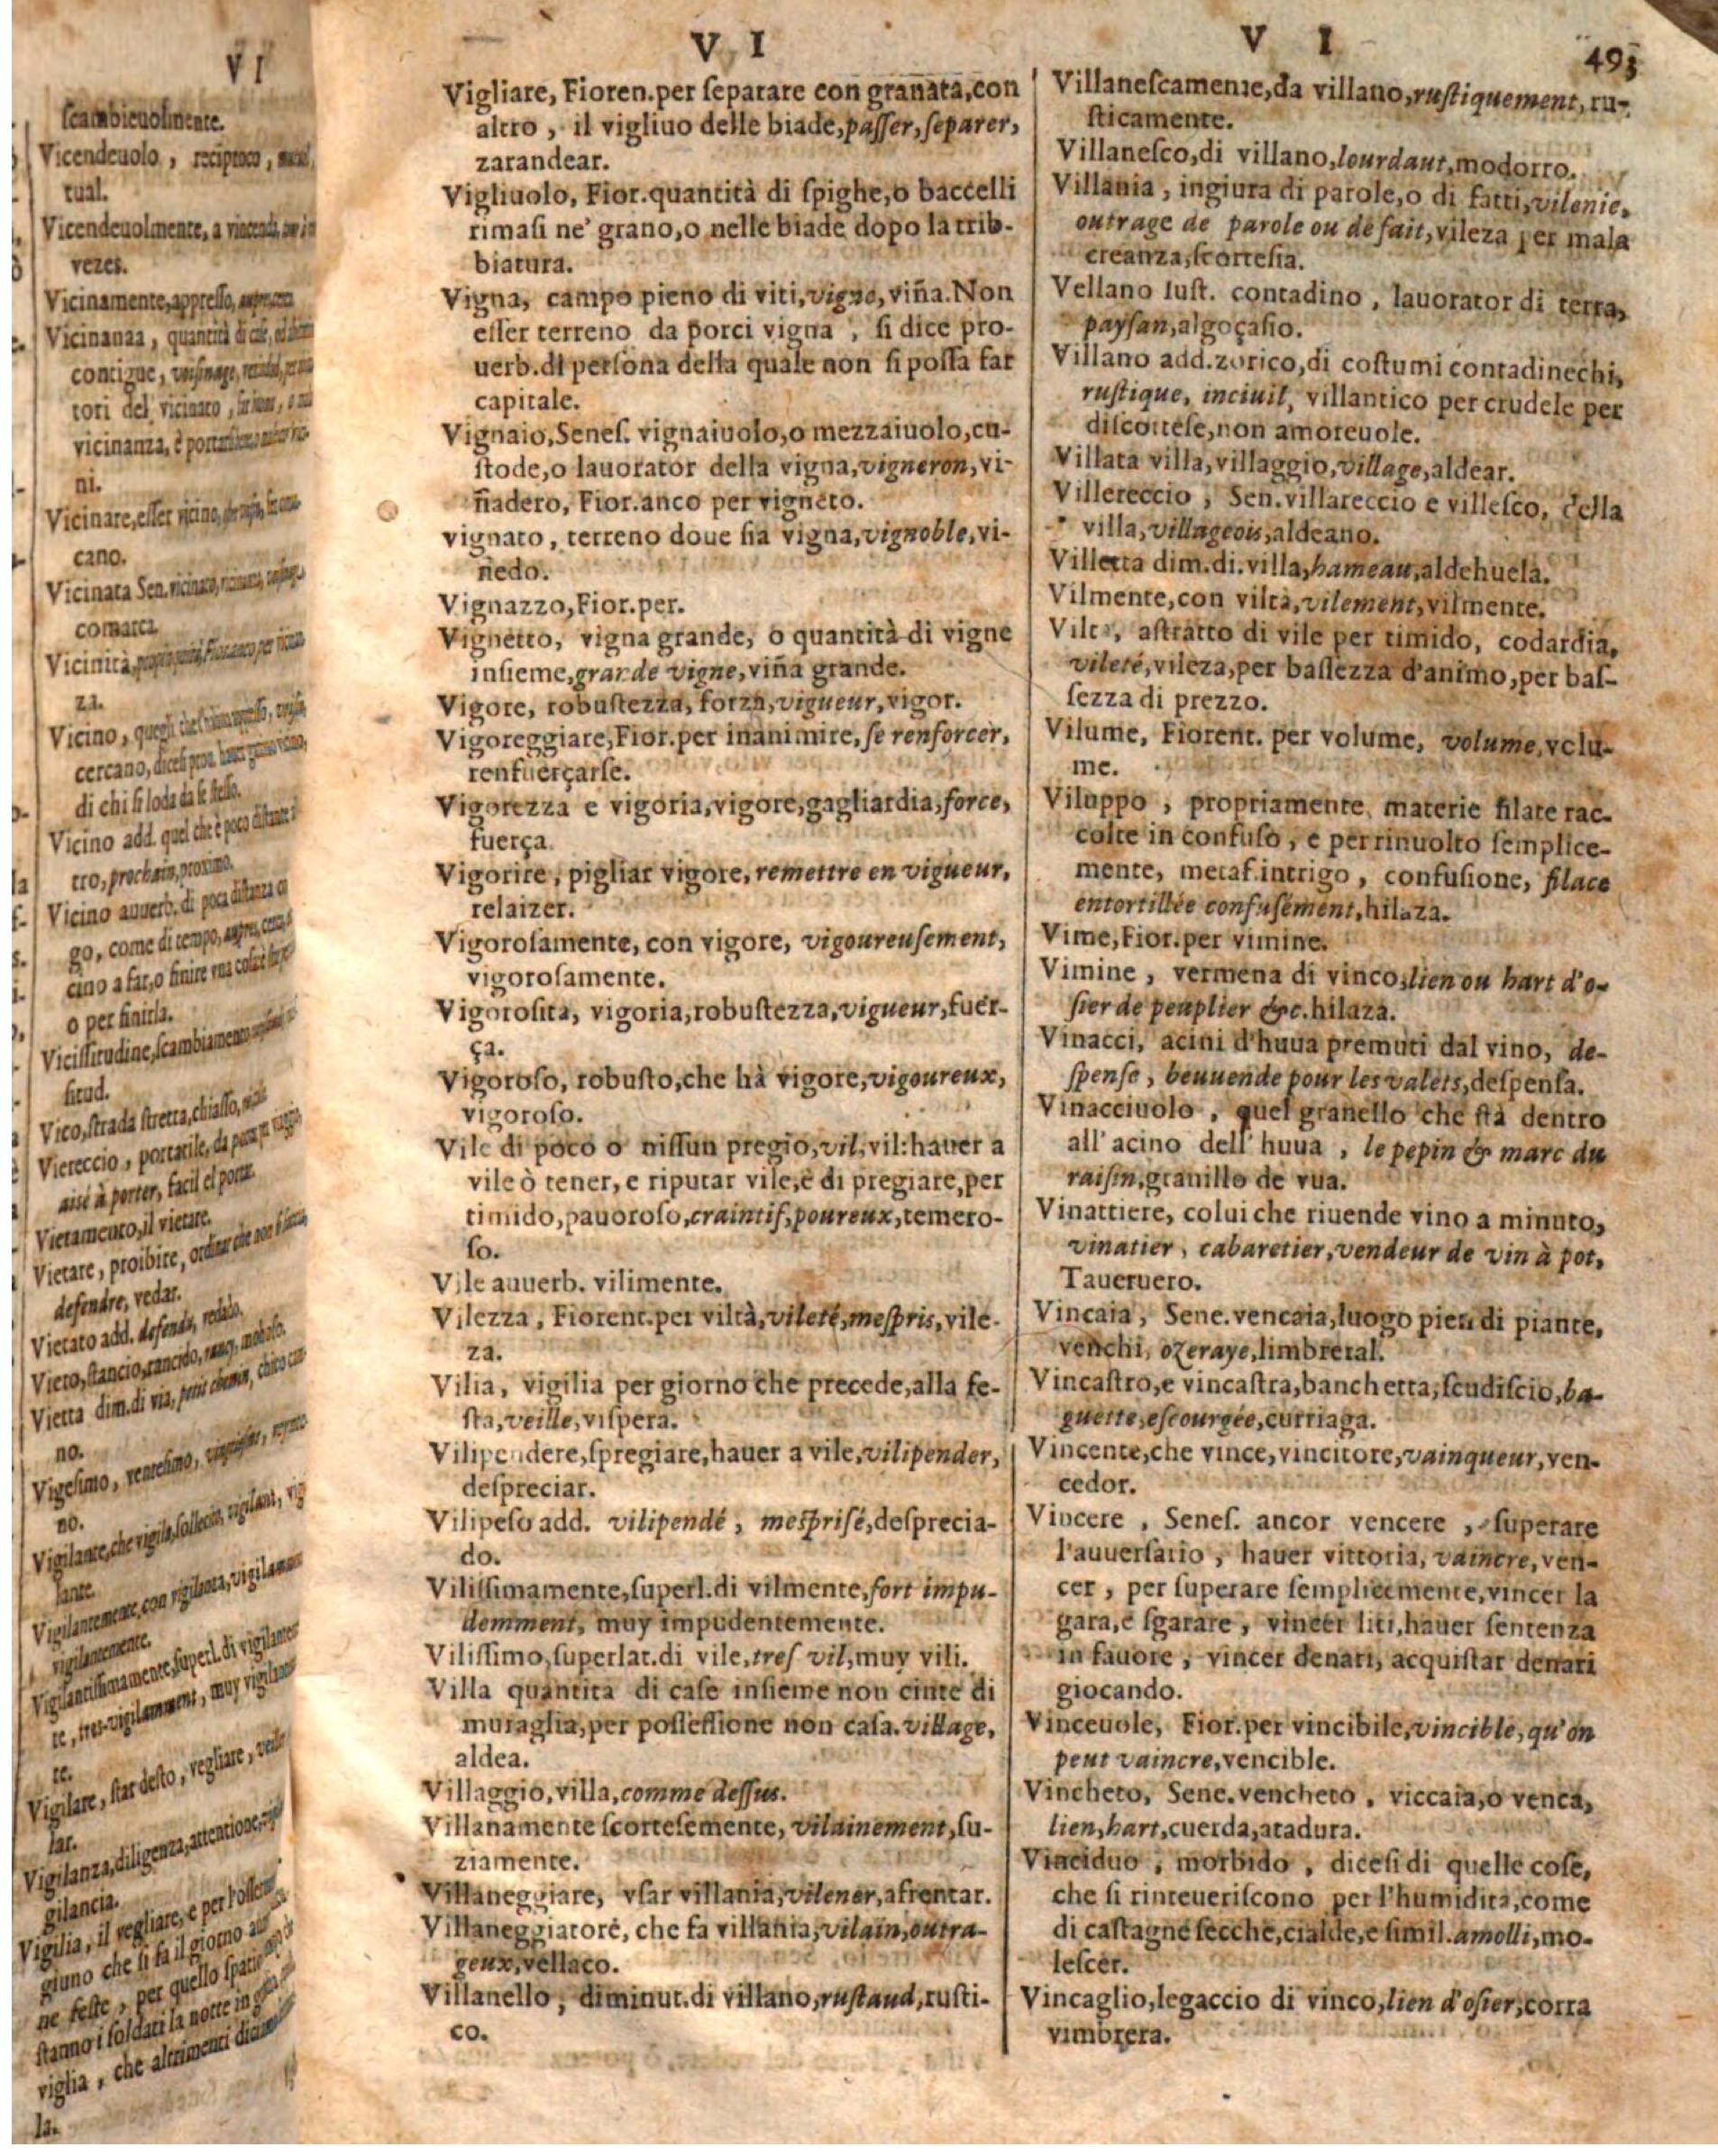 V I
ſcambieuolmente.
Vicendeuolo, reciproco,
tual.
Vicendeuolmente, a vincenda,
vezes.
Vicinamente, appreſſo,
Vicinanaa, quantità di caſe,
contigue, voiſinage,
tori del vicinato,
vicinanza, è
ni.
Vicinare, eſſer vicino,
cano.
Vicinata Sen. vicinato,
comarca
Vicinità,
za.
Vicino, quegli
cercano, diceſi prou.
di chi ſi loda da ſe ſteſſo.
Vicino add. quel che è poco diſtante
tro, prochain, proximo.
Vicino auuerb. di poca diſtanza
go, come di tempo,
cino a far, o finire vna coſa
o per finirla.
Viciſſitudine, ſcambiamento
ſitud.
Vico, ſtrada ſtretta, chiaſſo,
Viereccio, portatile, da
aisé à porter, facil el portar.
Vietamento, il vietare.
Vietare, proibire, ordinar che non
defendre, vedar.
Vietato add. defendu, vedado.
Vieto, ſtancio, rancido,
Vietta dim. di via, petit chemin,
no.
Vigeſimo, venteſimo,
no.
Vigilante, che vigila, ſollecito, vigilant, vigi
lante.
Vigilantemente, con vigilanza,
vigilantemente.
Vigilantiſſimamente, ſuperl. di vigilantemen
te, tres-vigilamment, muy
te.
Vigilare, ſtar deſto, vegliare,
lar.
Vigilanza, diligenza, attentione,
gilancia.
Vigilia, il vegliare, e per l'oſſeru
giuno che ſi fa il giorno
ne feſte, per quello ſpatio
ſtanno i ſoldati la notte in
viglia, che altrimenti
la.
V I
Vigliare, Fioren. per ſeparare con granata, con
altro, il vigliuo delle biade, paſſer, ſeparer,
zarandear.
Vigliuolo, Fior. quantità di ſpighe, o baccelli
rimaſi ne' grano, o nelle biade dopo la trib-
biatura.
Vigna, campo pieno di viti, vigne, viña. Non
eſſer terreno da porci vigna, ſi dice pro-
uerb. di perſona della quale non ſi poſſa far
capitale.
Vignaio, Seneſ. vignaiuolo, o mezzaiuolo, cu-
ſtode, o lauorator della vigna, vigneron, vi-
ñadero, Fior. anco per vigneto.
vignato, terreno doue ſia vigna, vignoble, vi-
ñedo.
Vignazzo, Fior. per.
Vignetto, vigna grande, o quantità di vigne
inſieme, grande vigne, viña grande.
Vigore, robuſtezza, forza, vigueur, vigor.
Vigoreggiare, Fior. per inanimire, ſe renforcer,
renfuerçarſe.
Vigorezza e vigoria, vigore, gagliardia, force,
fuerça.
Vigorire, pigliar vigore, remettre en vigueur,
relaizer.
Vigoroſamente, con vigore, vigoureuſement,
vigoroſamente.
Vigoroſita, vigoria, robuſtezza, vigueur, fuer-
ça.
Vigoroſo, robuſto, che hà vigore, vigoureux,
vigoroſo.
Vile di poco o niſſun pregio, vil, vil: hauer a
vile ò tener, e riputar vile, è di pregiare, per
timido, pauoroſo, craintif, poureux, temero-
ſo.
Vile auuerb. vilimente.
Vilezza, Fiorent. per viltà, vileté, meſpris, vile-
za.
Vilia, vigilia per giorno che precede, alla fe-
ſta, veille, viſpera.
Vilipendere, ſpregiare, hauer a vile, vilipender,
deſpreciar.
Vilipeſo add. vilipendé, meſpriſé, deſprecia-
do.
Viliſſimamente, ſuperl. di vilmente, fort impu-
demment, muy impudentemente.
Viliſſimo, ſuperlat. di vile, treſ vil, muy vili.
Villa quantità di caſe inſieme non cinte di
muraglia, per poſſeſſione non caſa. village,
aldea.
Villaggio, villa, comme deſſus.
Villanamente ſcorteſemente, vilainement, ſu-
ziamente.
Villaneggiare, vſar villania, vilener, afrentar.
Villaneggiatore, che fa villania, vilain, outra-
geux, vellaco.
Villanello, diminut. di villano, ruſtaud, ruſti-
co.
V I 493
Villaneſcamente, da villano, ruſtiquement, ru-
ſticamente.
Villaneſco, di villano, lourdaut, modorro.
Villania, ingiura di parole, o di fatti, vilenie,
outrage de parole ou de fait, vileza per mala
creanza, ſcorteſia.
Vellano ſuſt. contadino, lauorator di terra,
payſan, algoçaſio.
Villano add. zorico, di coſtumi contadinechi,
ruſtique, inciuil, villantico per crudele per
diſcorteſe, non amoreuole.
Villata villa, villaggio, village, aldear.
Villereccio, Sen. villareccio e villeſco, della
villa, villageois, aldeano.
Villetta dim. di. villa, hameau, aldehuela.
Vilmente, con viltà, vilement, vilmente.
Viltà, aſtratto di vile per timido, codardia,
vileté, vileza, per baſſezza d'animo, per baſ-
ſezza di prezzo.
Vilume, Fiorent. per volume, volume, volu-
me.
Viluppo, propriamente materie filate rac-
colte in confuſo, e per rinuolto ſemplice-
mente, metaf. intrigo, confuſione, filace
entortillée confuſément, hilaza.
Vime, Fior. per vimine.
Vimine, vermena di vinco, lien ou hart d'o-
ſier de peuplier &c. hilaza.
Vinacci, acini d'huua premuti dal vino, de-
ſpenſe, beuuende pour les valets, deſpenſa.
Vinacciuolo, quel granello che ſtà dentro
all'acino dell'huua, le pepin & marc du
raiſin, granillo de vua.
Vinattiere, colui che riuende vino a minuto,
vinatier, cabaretier, vendeur de vin à pot,
Taueruero.
Vincaia, Sene. vencaia, luogo pien di piante,
venchi, ozeraye, limbreral.
Vincaſtro, e vincaſtra, banchetta, ſcudiſcio, ba-
guette, eſcourgée, curriaga.
Vincente, che vince, vincitore, vainqueur, ven-
cedor.
Vincere, Seneſ. ancor vencere, ſuperare
l'auuerſario, hauer vittoria, vaincre, ven-
cer, per ſuperare ſemplicemente, vincer la
gara, e ſgarare, vincer liti, hauer ſentenza
in fauore, vincer denari, acquiſtar denari
giocando.
Vinceuole, Fior. per vincibile, vincible, qu'on
peut vaincre, vencible.
Vincheto, Sene. vencheto, viccaia, o venca,
lien, hart, cuerda, atadura.
Vinciduo, morbido, diceſi di quelle coſe,
che ſi rinteueriſcono per l'humidità, come
di caſtagne ſecche, cialde, e ſimil. amolli, mo-
leſcer.
Vincaglio, legaccio di vinco, lien d'oſier, corra
vimbrera.